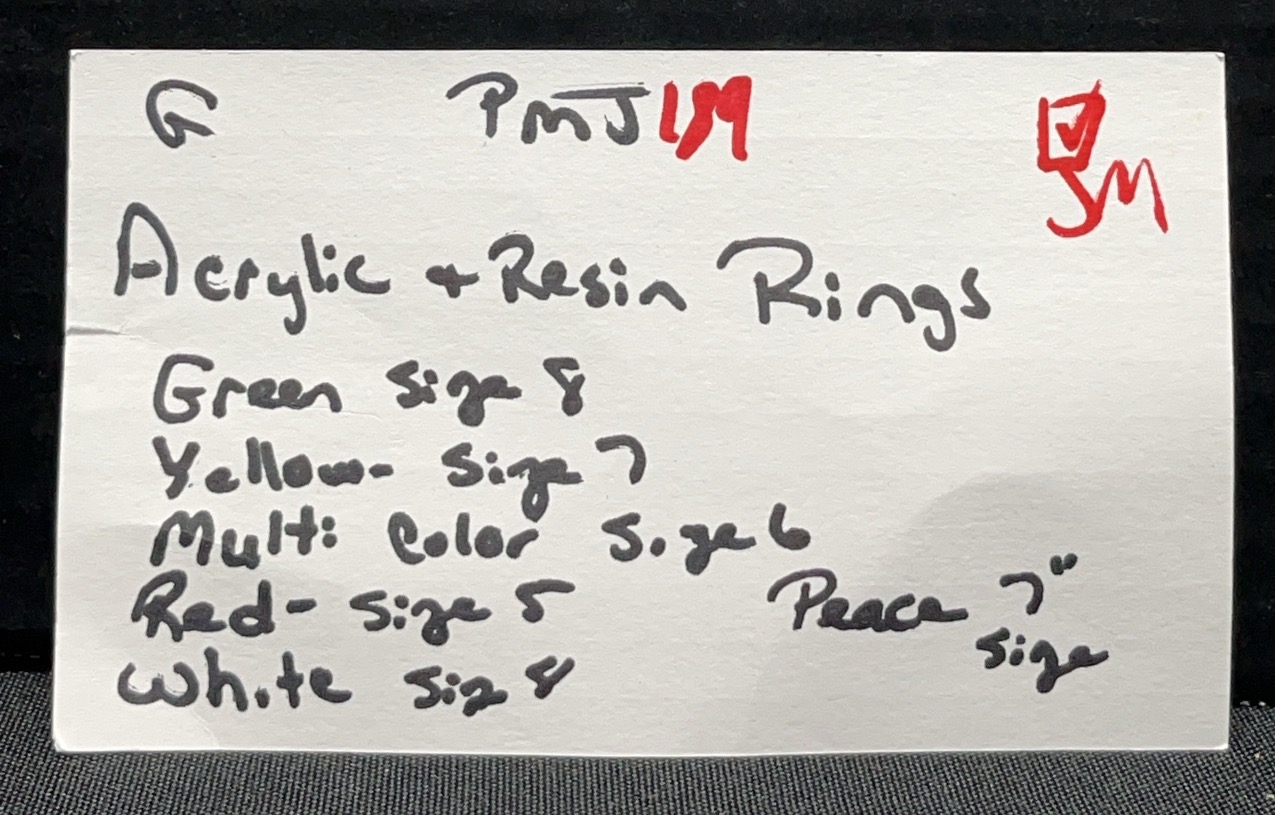 G PMJ189 JM
Acrylic + Resin Rings
Green size 8
Yellow- size 7
Multi Color size 6
Red- size 5
Peace 7"
size
White siz 8